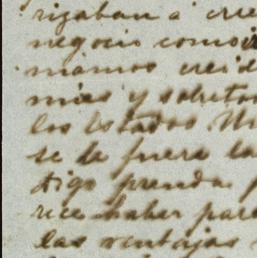 rizaban a cre
negocio como i
miamos creid
mies y sobreto
los Estados Un
se le fuera la
digo prenda p
rece haber par
las ventajas